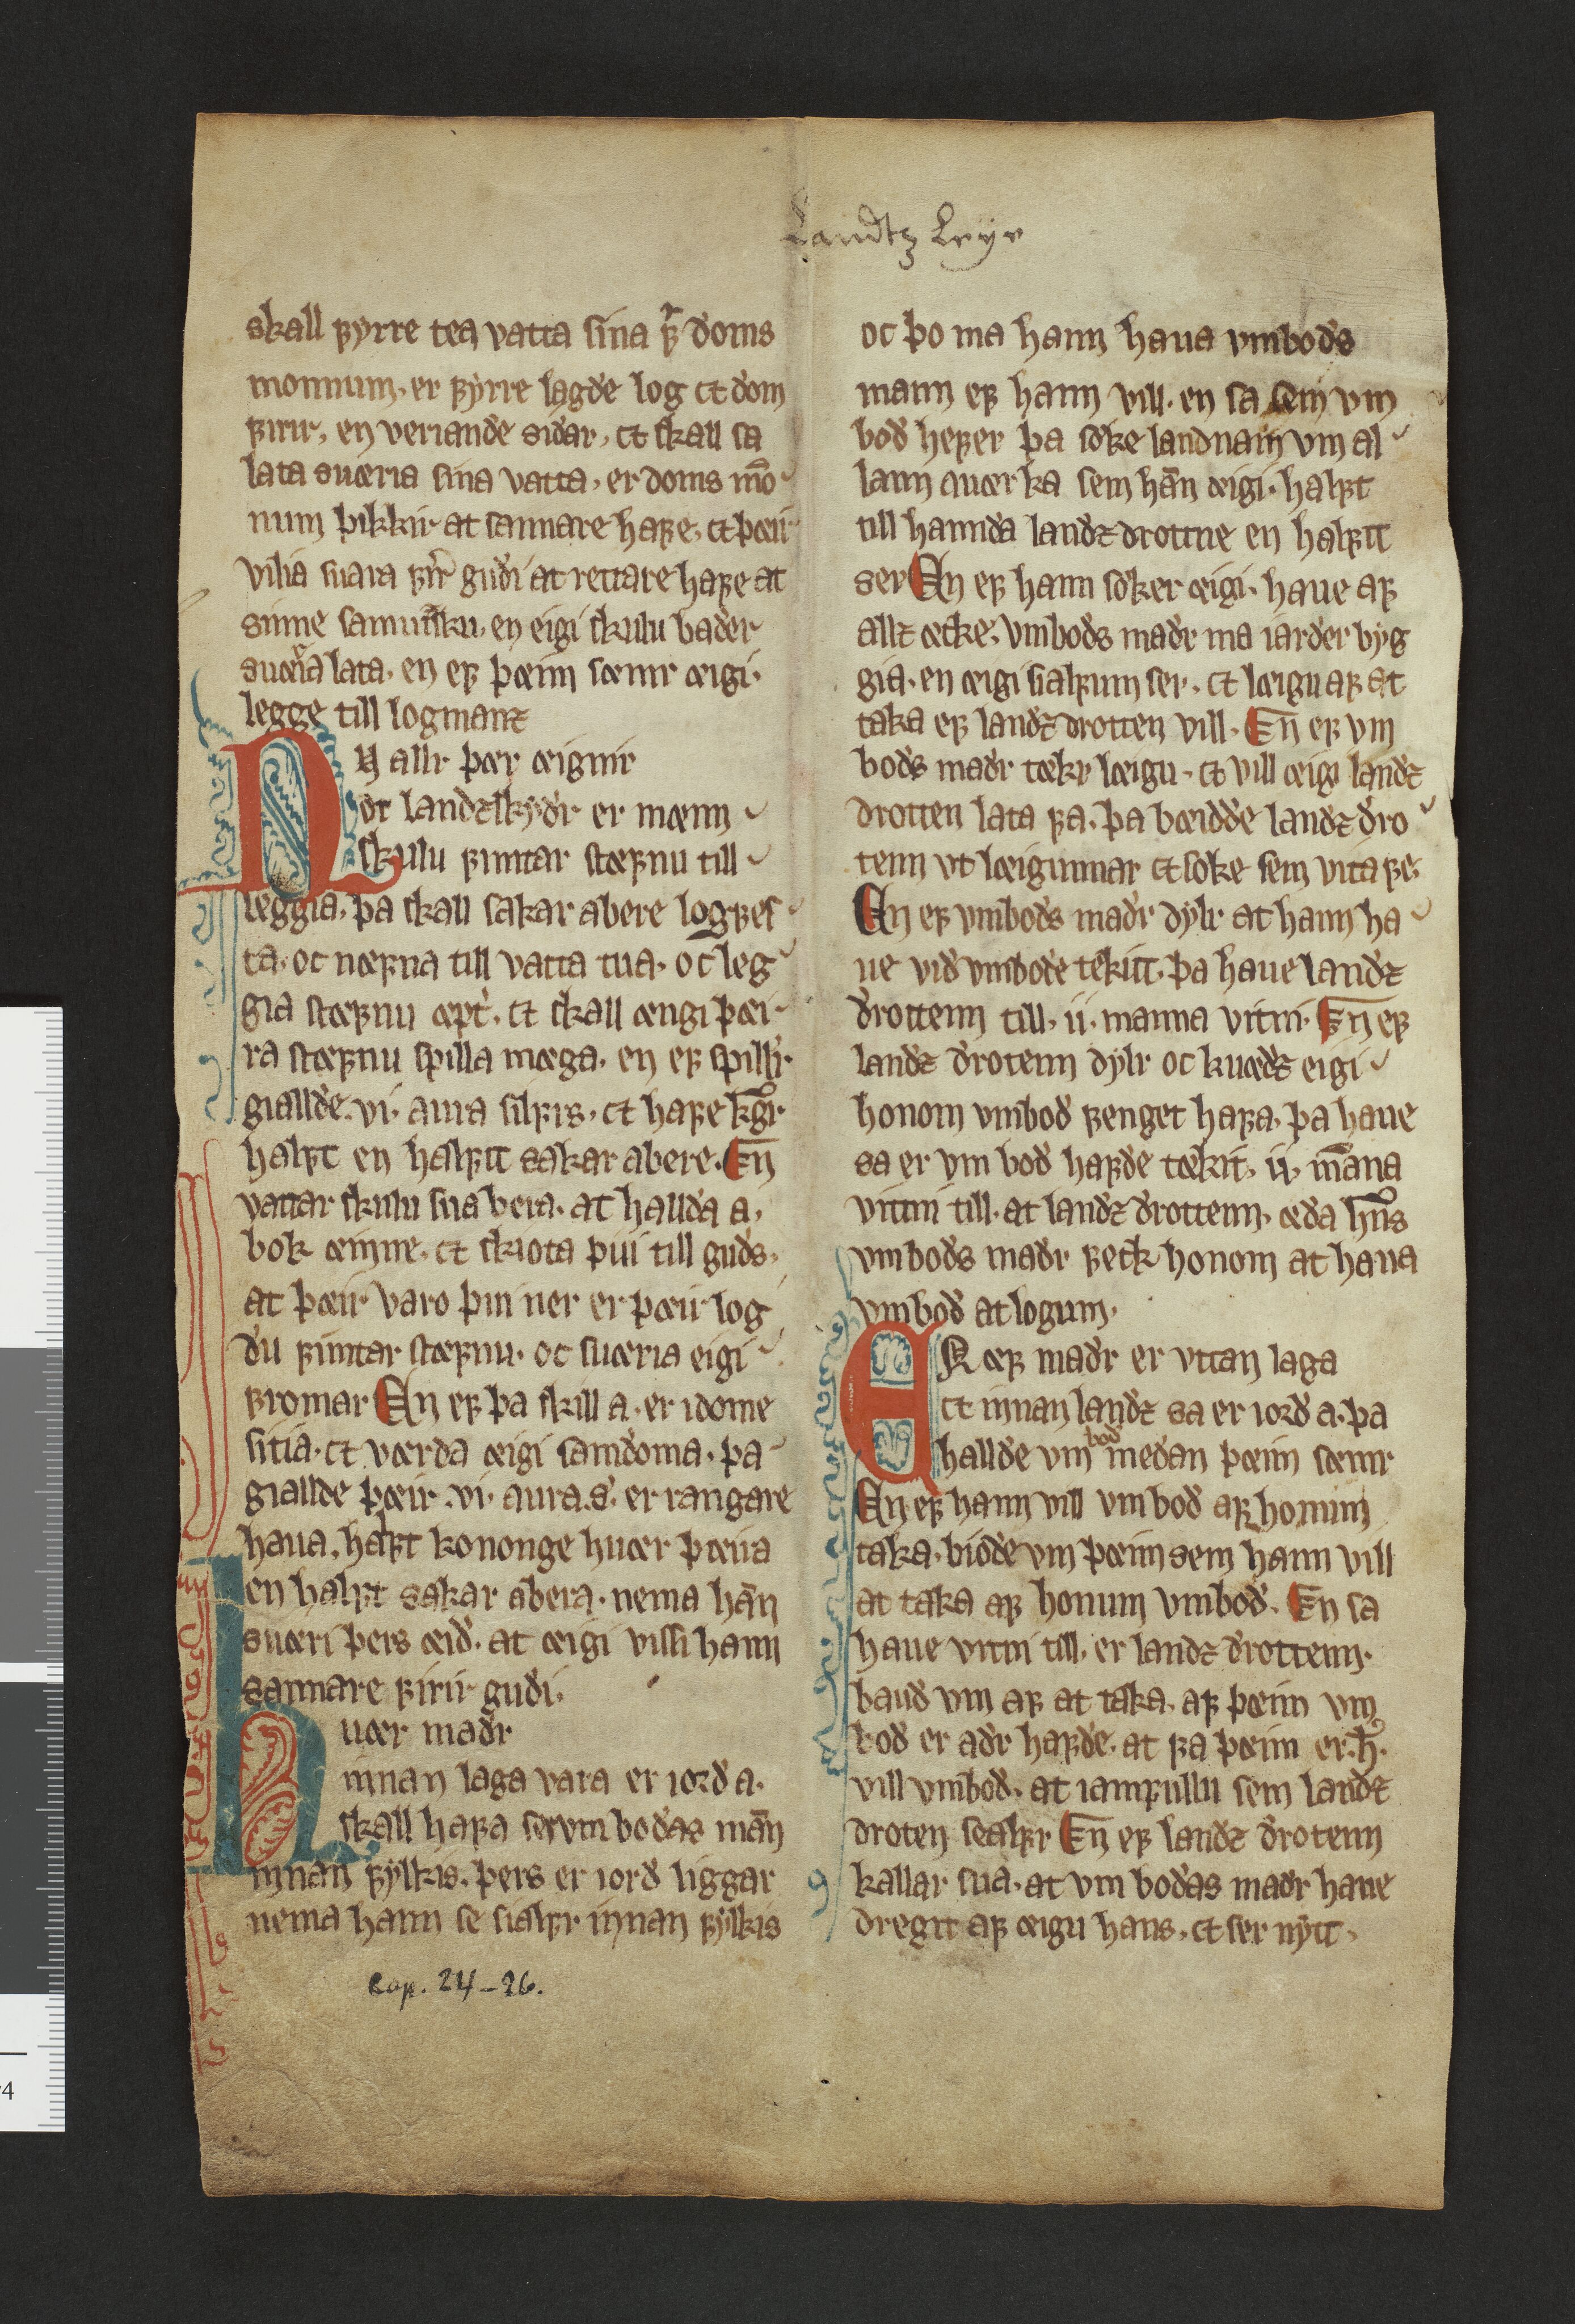 Landtz Leye
skall ꝼyrre tea vatta sina ꝼͬ doms
monnum, er ꝼyrre lagde log ct dom
ꝼirir, en veriande sidar, ct skall sa
lata suæria sina vatta, er doms mō
num þikkir at sannare haꝼe, ct þæir
vilia suara ꝼirͬ gudi at rettare haꝼe at
sinne samuitsku, en eigi skulu bader
suæria lata, en eꝼ þæim sæmr æigi.
legge till logmanz
NV allr þær æignir
oc landzskyldr er mænn
skulu ꝼimtar stæꝼnu till
leggia, þa skall sakar abere logꝼes
ta, oc næꝼna till vatta tua, oc leg
gia stæꝼnu æpt͛, ct skall ængi þæi
ra stæꝼnu spilla mæga, en eꝼ spilli͛
giallde vi aura silꝼrs, ct haꝼe kōgr
halꝼt en halꝼtt sakar abere. En̄
vattar skulu sua bera, at hallda a,
bok æinne, ct skiota þui till guds,
at þæir varo þui ner er þæir log
du ꝼimtar stæꝼnu, oc suæria eigi
ꝼromar En eꝼ þa skill a, er idome
sitia, ct værda æigi samdoma, þa
giallde þæir vi aura s. er rangare
haua, halꝼt kononge huær þæira
en halꝼt sakar abera, nema hān
suæri þers æid, at æigi vissi hann
sannare ꝼirir gudi.
huær madr
innan laga vara er iord a.
skall haꝼa ser vmbodas mān
innan ꝼylkis, þers er iord liggar
nema hann se sialꝼr innan ꝼylkis
Kap. 24-26.
oc þo ma hann haua vmbods
mann eꝼ hann vill. en sa sem vm
bod heꝼer þa søke landnam vm al
lann auærka sem hān æigi. halꝼt
till hannda landz drottne en halꝼtt
ser En eꝼ hann søker æigi. haue aꝼ
allz ække. vmbods madr ma iarder byg
gia, en æigi sialꝼum ser, ct læigu aꝼ at
taka eꝼ landz drotten vill. En̄ eꝼ vm
bods madr tækr læigu, ct vill æigi landz
drotten lata ꝼa, þa bæidde landz dro
tenn vt læigunnar ct søke sem vita ꝼe.
En eꝼ vmbods madr dylr at hann ha
ue vid vmbode tekitt, þa haue landz
drottenn till. ii. manna vitni. En̄ eꝼ
landz drotenn dylr oc kuædz eigi
honom vmbod ꝼenget haꝼa, þa haue
sa er vm bod haꝼde tækit. ii. māna
vittni till, at landz drottenn, æda hn̄s
vmbods madr ꝼeck honom at haua
vmbod at logum.
EN æꝼ madr er vttan laga
ct innan landz sa er iord a, þa
hallde vm bod medan þæim sæmr
En eꝼ hann vill vmbod aꝼ honum
taka, biode vm þæim sem hann vill
at taka aꝼ honum vmbod. En sa
haue vitni till, er landz drottenn.
baud vm aꝼ at taka, aꝼ þæim vm
bod er adr haꝼde, at ꝼa þæim er. ħ.
vill vmbod, at iamꝼullu sem landz
droten sealꝼr En̄ eꝼ landz drotenn
kallar sua, at vm bodas madr haue
dregit aꝼ æigu hans, ct ser nytt,